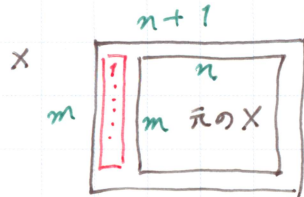 n + 1
X
1
n
m
m 元のX